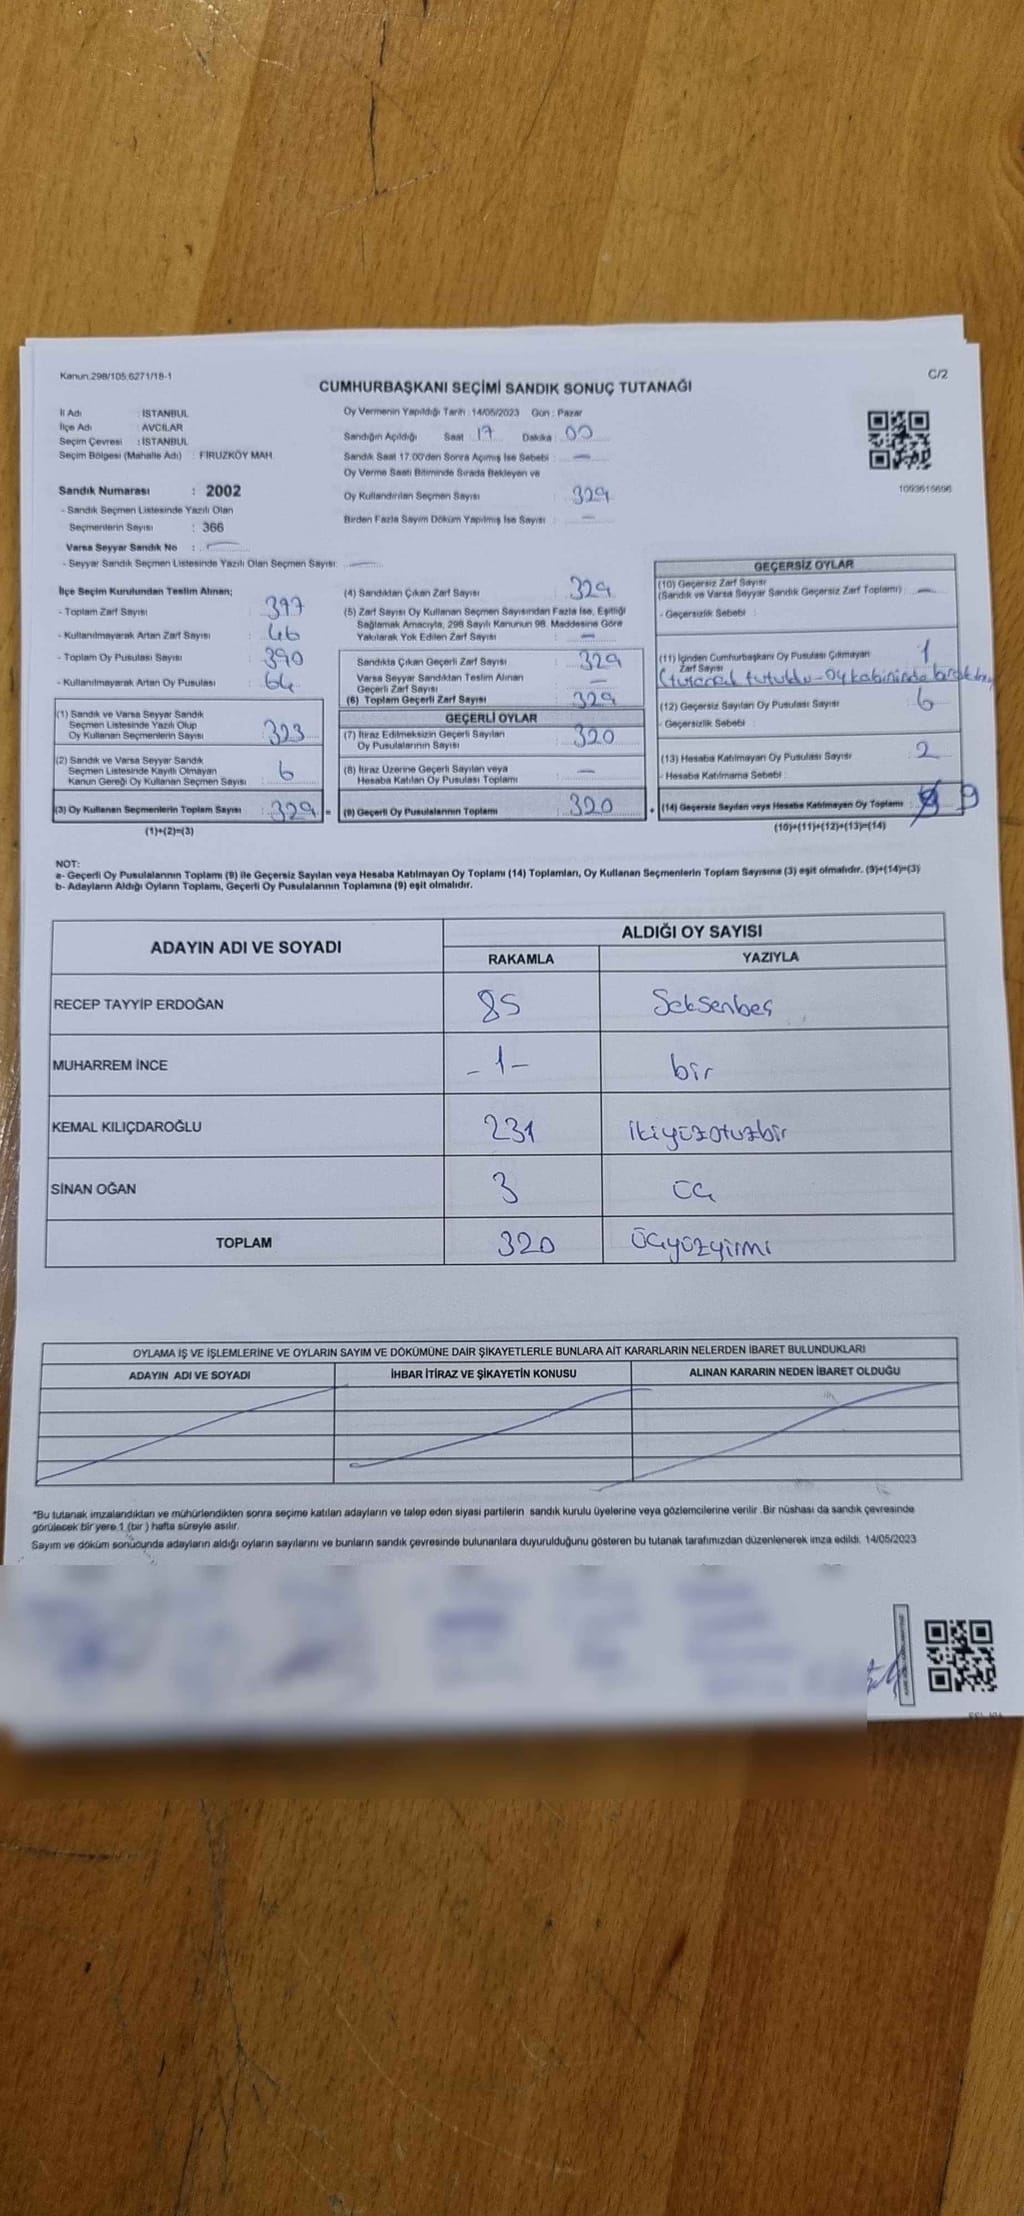 Kanun.298/105,6271/18-1
C/2
CUMHURBAŞKANI SEÇİMİ SANDIK SONUÇ TUTANAĞI
İl Adı : İSTANBUL
İlçe Adı : AVCILAR
Seçim Çevresi : İSTANBUL
Seçim Bölgesi (Mahalle Adı) : FİRUZKÖY MAH.
Sandık Numarası : 2002
- Sandık Seçmen Listesinde Yazılı Olan
Seçmenlerin Sayısı : 366
Varsa Seyyar Sandık No : —
- Seyyar Sandık Seçmen Listesinde Yazılı Olan Seçmen Sayısı: —
Oy Vermenin Yapıldığı Tarih : 14/05/2023 Gün : Pazar
Sandığın Açıldığı Saat 17 Dakika : 00
Sandık Saat 17.00'den Sonra Açılmış İse Sebebi : —
Oy Verme Saati Bitiminde Sırada Bekleyen ve
Oy Kullandırılan Seçmen Sayısı : 329
Birden Fazla Sayım Döküm Yapılmış İse Sayısı : —
1093615696
İlçe Seçim Kurulundan Teslim Alınan;
- Toplam Zarf Sayısı : 397
- Kullanılmayarak Artan Zarf Sayısı : 46
- Toplam Oy Pusulası Sayısı : 390
- Kullanılmayarak Artan Oy Pusulası : 64
(1) Sandık ve Varsa Seyyar Sandık
Seçmen Listesinde Yazılı Olup
Oy Kullanan Seçmenlerin Sayısı : 323
(2) Sandık ve Varsa Seyyar Sandık
Seçmen Listesinde Kayıtlı Olmayan
Kanun Gereği Oy Kullanan Seçmen Sayısı : 6
(3) Oy Kullanan Seçmenlerin Toplam Sayısı : 329 =
(1)+(2)=(3)
(4) Sandıktan Çıkan Zarf Sayısı : 329
(5) Zarf Sayısı Oy Kullanan Seçmen Sayısından Fazla İse, Eşitliği
Sağlamak Amacıyla, 298 Sayılı Kanunun 98. Maddesine Göre
Yakılarak Yok Edilen Zarf Sayısı : —
Sandıkta Çıkan Geçerli Zarf Sayısı : 329
Varsa Seyyar Sandıktan Teslim Alınan
Geçerli Zarf Sayısı : —
(6) Toplam Geçerli Zarf Sayısı : 329
GEÇERLİ OYLAR
(7) İtiraz Edilmeksizin Geçerli Sayılan
Oy Pusulalarının Sayısı : 320
(8) İtiraz Üzerine Geçerli Sayılan veya
Hesaba Katılan Oy Pusulası Toplamı : —
(9) Geçerli Oy Pusulalarının Toplamı : 320 +
GEÇERSİZ OYLAR
(10) Geçersiz Zarf Sayısı
(Sandık ve Varsa Seyyar Sandık Geçersiz Zarf Toplamı) : —
- Geçersizlik Sebebi :
(11) İçinden Cumhurbaşkanı Oy Pusulası Çıkmayan
Zarf Sayısı : 1
(tutanak tutuldu - Oy kabininde
(12) Geçersiz Sayılan Oy Pusulası Sayısı : 6
- Geçersizlik Sebebi :
(13) Hesaba Katılmayan Oy Pusulası Sayısı : 2
- Hesaba Katılmama Sebebi :
(14) Geçersiz Sayılan veya Hesaba Katılmayan Oy Toplamı : 9
(10)+(11)+(12)+(13)=(14)
NOT:
a- Geçerli Oy Pusulalarının Toplamı (9) ile Geçersiz Sayılan veya Hesaba Katılmayan Oy Toplamı (14) Toplamları, Oy Kullanan Seçmenlerin Toplam Sayısına (3) eşit olmalıdır. (9)+(14)=(3)
b- Adayların Aldığı Oyların Toplamı, Geçerli Oy Pusulalarının Toplamına (9) eşit olmalıdır.
ADAYIN ADI VE SOYADI ALDIĞI OY SAYISI
RAKAMLA YAZIYLA
RECEP TAYYİP ERDOĞAN 85 Seksenbeş
MUHARREM İNCE -1- bir
KEMAL KILIÇDAROĞLU 231 ikiyüzotuzbir
SİNAN OĞAN 3 üç
TOPLAM 320 üçyüzyirmi
OYLAMA İŞ VE İŞLEMLERİNE VE OYLARIN SAYIM VE DÖKÜMÜNE DAİR ŞİKAYETLERLE BUNLARA AİT KARARLARIN NELERDEN İBARET BULUNDUKLARI
ADAYIN ADI VE SOYADI İHBAR İTİRAZ VE ŞİKAYETİN KONUSU ALINAN KARARIN NEDEN İBARET OLDUĞU
*Bu tutanak imzalandıktan ve mühürlendikten sonra seçime katılan adayların ve talep eden siyasi partilerin sandık kurulu üyelerine veya gözlemcilerine verilir .Bir nüshası da sandık çevresinde
görülecek bir yere 1 (bir ) hafta süreyle asılır.
Sayım ve döküm sonucunda adayların aldığı oyların sayılarını ve bunların sandık çevresinde bulunanlara duyurulduğunu gösteren bu tutanak tarafımızdan düzenlenerek imza edildi. 14/05/2023